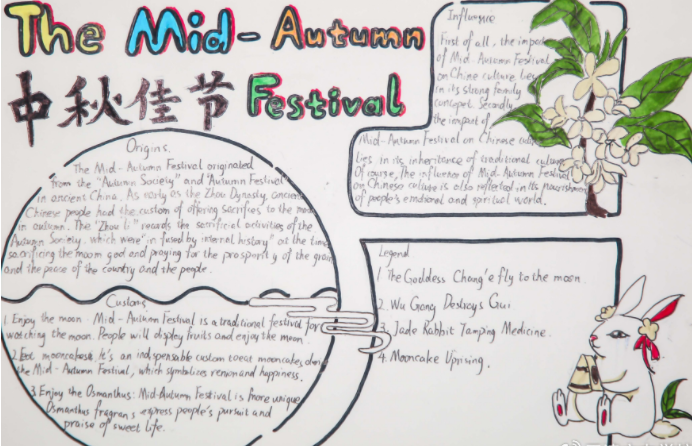 The Mid-Autumn
中秋佳节 Festival
Origins.
The Mid-Autumn Festival originated
from the "Autumn Society" and "Autumn Festival"
in ancient China. As early as the Zhou Dynasty, ancient
Chinese people had the custom of offering sacrifices to the moon
in autumn. The "Zhou Li" records the sacrificial activities of the
Autumn Society, which were "in fused by internal history" at the time
sacrificing the moom god and praying for the prosperity of the
and the peace of the country and the people.
Customs
1. Enjoy the moon. Mid-Autumn Festival is a traditional festival for
watching the moon. People will display fruits and enjoy the moon.
2. Eat It's an indispensable custom to eat mooncakes
the Mid-Autumn Festival, which symbolizes reunion and happiness.
3. Enjoy the Osmanthus: Mid-Autumn Festival is more unique
Osmanthus express people's pursuit and
praise of sweet life.
Influence
First of all, the
of Mid-Autumn Festival
on Chine culture lies
in its strong family
concept. Secondly
the impact of
Mid-Autumn Festival on Chinese
lies in its inheritance of traditional culture
Of course, the influence of Mid-Autumn Festival
on Chinese culture is also reflected in its nourishment
of people's emotional and spiritual world.
Legend
1. The Goddess Chang'e fly to the moon.
2. Wu Gang Destroys Gui
3. Jade Rabbit Tamping Medicine.
4. Mooncake Uprising.